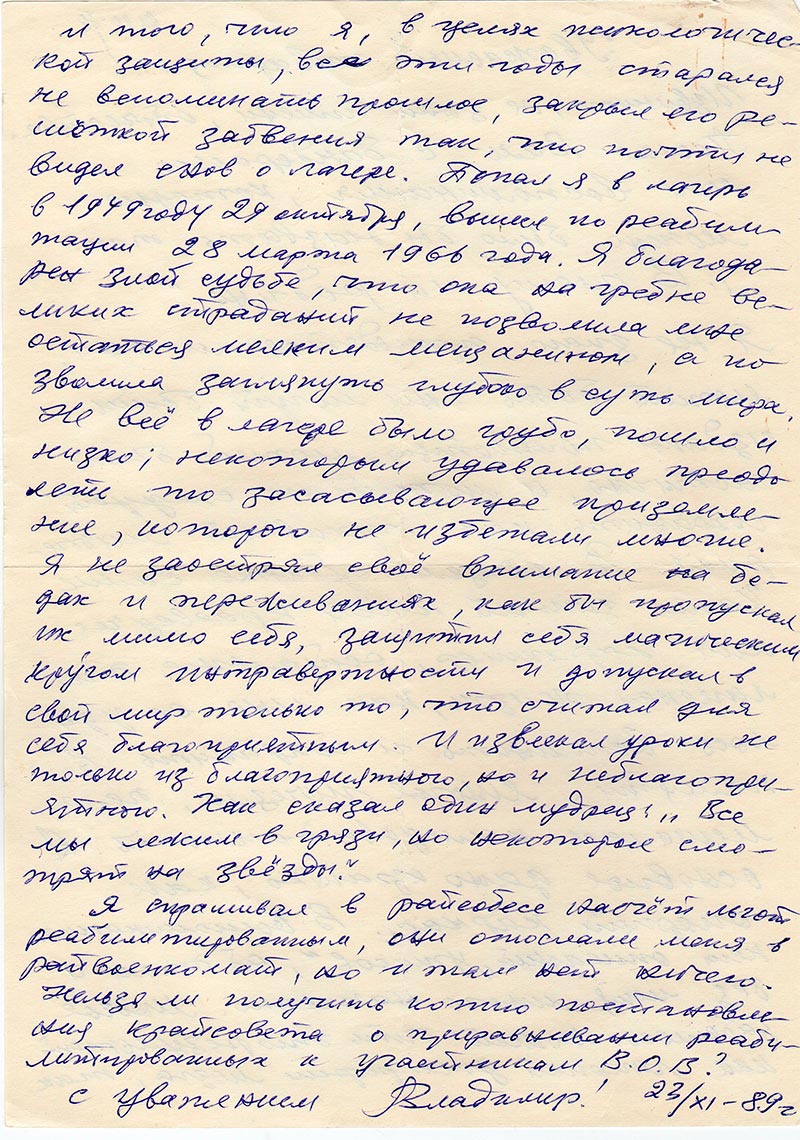 и того, что я, в целях психологичес-
кой защиты, все эти годы старался
не вспоминать прошлое, закрыв его ре-
шёткой забвения так, что почти не
видел снов о лагере. Попал я в лагерь
в 1949 году 29 октября, вышел по реабили-
тации 28 марта 1966 года. Я благода-
рен злой судьбе, что она на гребне ве-
ликих страданий не позволила мне
остаться мелким мещанином, а по
зволила заглянуть глубоко в суть мира.
Не всё в лагере было грубо, пошло и
низко; некоторым удавалось преодо
леть то засасывающее приземле-
ние, которого не избежали многие.
Я не заострял своё внимание на бе-
дах и переживаниях, как бы пропускал
их мимо себя, защитил себя магическим
кругом интравертности и допускал в
свой мир только то, что считал для
себя благоприятным. И извлекал уроки не
только из благоприятного, но и неблагопри-
ятного. Как сказал один мудрец: „Все
мы лежим в грязи, но некоторые смо-
трят на звёзды."
Я спрашивал в райсобесе насчёт льгот
реабилитированным, они отослали меня в
райвоенкомат, но и там нет ничего.
Нельзя ли получить копию постановле-
ния крайсовета о приравнивании реаби-
литированных к участникам В.О.В?
с уважением Владимир! 23/XI-89г